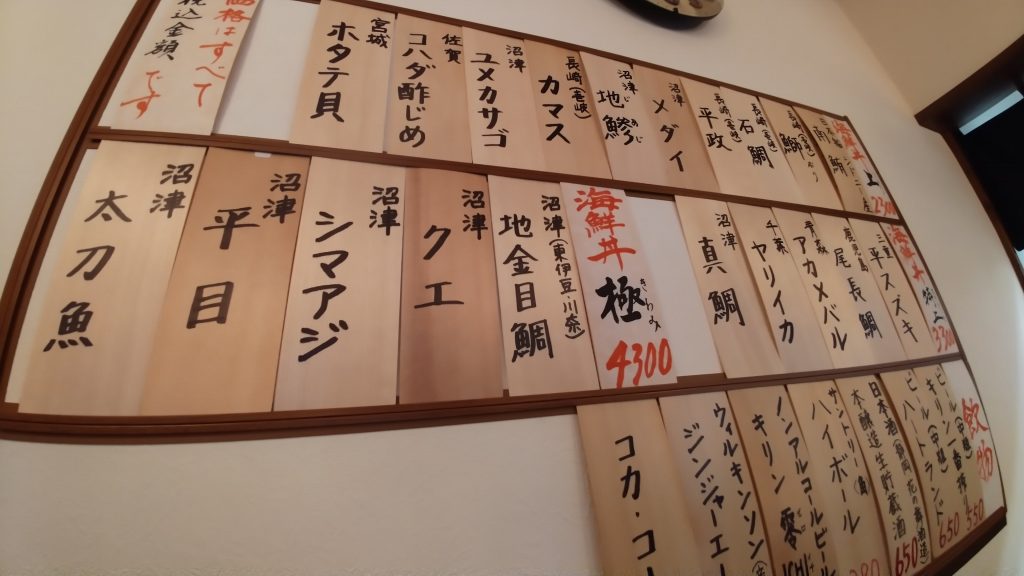 海鮮丼 上 2300
石鯛
長崎(五島)
平政
沼津
メダイ
沼津
地鯵
長崎(長崎)
カマス
沼津
ユメカサゴ
佐賀
コハダ酢じめ
宮城
ホタテ貝
価格はすべて
税込金額
です
海鮮丼 特上 3300
三重
平スズキ
鹿児島
尾長鯛
アカメバル
千葉
ヤリイカ
沼津
真鯛
海鮮丼
極
きわみ
4300
沼津(東伊豆・川奈)
地金目鯛
沼津
クエ
沼津
シマアジ
沼津
平目
沼津
太刀魚
飲物
550
650
ハートランド
日本酒
本醸造生貯蔵酒
650
サントリー(角)
ハイボール
ノンアルコールビール
キリン
零ICHI
ウィルキンソン
ジンジャーエー
コカ・コー